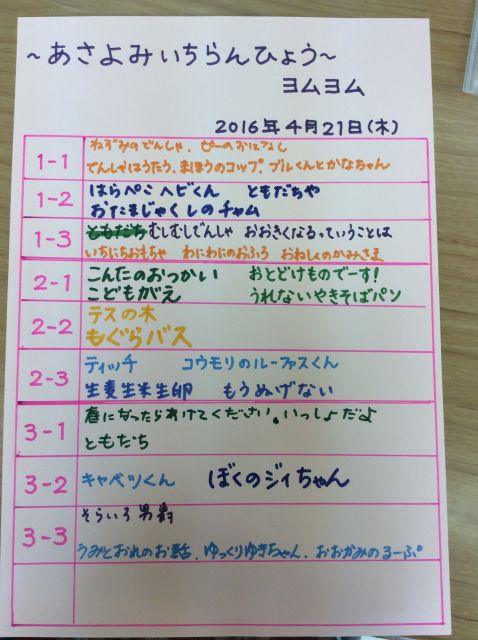 ~あさよみいちらんひょう~
ヨムヨム
2016年4月21日(木)
1-1 ねずみのでんしゃ、ピーのおはなし
でんしゃはうたう、まほうのコップ、ブルくんとかなちゃん
1-2 はらぺこヘビくん ともだちや
おたまじゃくしのチャム
1-3 ともだち むしむしでんしゃ おおきくなるっていうことは
いちにちおもちゃ わにわにのおふろ おねしょのかみさま
2-1 こんたのおつかい おとどけものでーす!
こどもがえ うれないやきそばパン
2-2 テスの木
もぐらバス
2-3 ティッチ コウモリのルーファスくん
生麦生米生卵 もうぬげない
3-1 春になったらあけてください。いっしょだよ
ともだち
3-2 キャベツくん ぼくのジィちゃん
3-3 そらいろ男爵
うみとおれのお話、ゆっくりゆきちゃん、おおかみのるーぷ